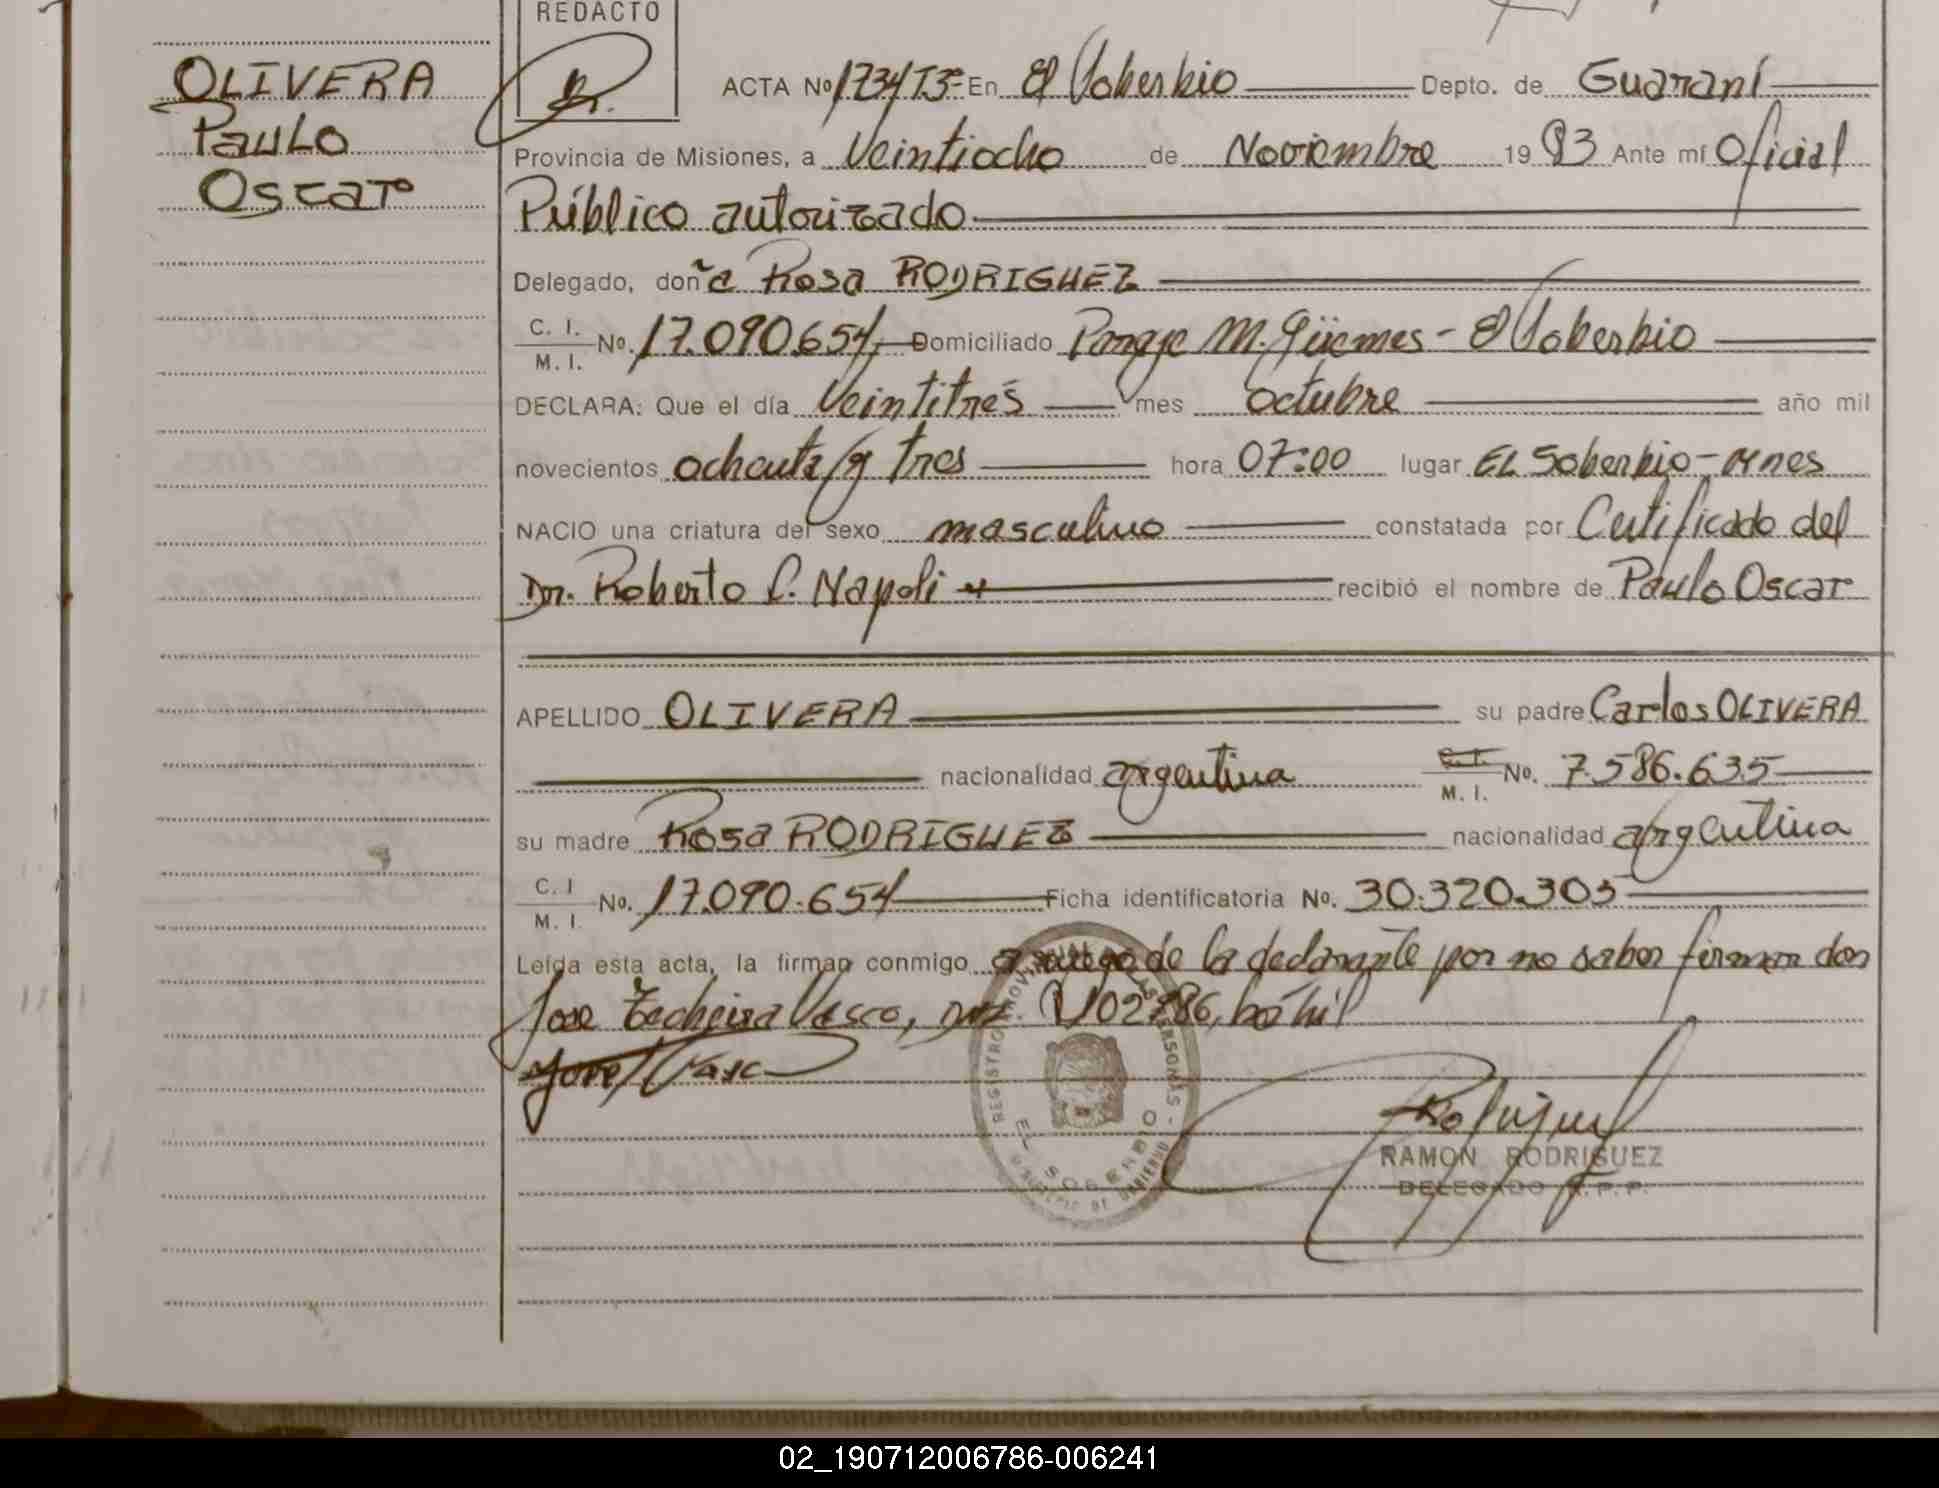 REDACTO
OLIVERA
Paulo
Oscar
ACTA Nº 1734T3º En El Soberbio Depto. de Guaraní
Provincia de Misiones, a Veintiocho de Noviembre 1983 Ante mí Oficial
Público autorizado
Delegado, doña Rosa RODRIGUEZ
C. I.
M. I. No. 17.090.654, Domiciliado Paraje M. Güemes - El Soberbio
DECLARA: Que el día Veintitrés mes octubre año mil
novecientos ochenta y tres hora 07:00 lugar El Soberbio - Mnes
NACIO una criatura del sexo masculino constatada por Certificado del
Dr. Roberto C. Napoli recibió el nombre de Paulo Oscar
APELLIDO OLIVERA su padre Carlos OLIVERA
nacionalidad argentina C.I. M. I. No. 7.586.635
su madre Rosa RODRIGUEZ nacionalidad argentina
C. I
M. I. No. 17.090.654 Ficha identificatoria No. 30.320.303
Leída esta acta, la firman conmigo a ruego de la declarante por no saber firmar don
Jose Techeira Vasco,
REGISTRO PROVINCIAL DE LAS PERSONAS
EL SOBERBIO
MINISTERIO DE GOBIERNO
RAMON RODRIGUEZ
DELEGADO R.P.P.
02_190712006786-006241